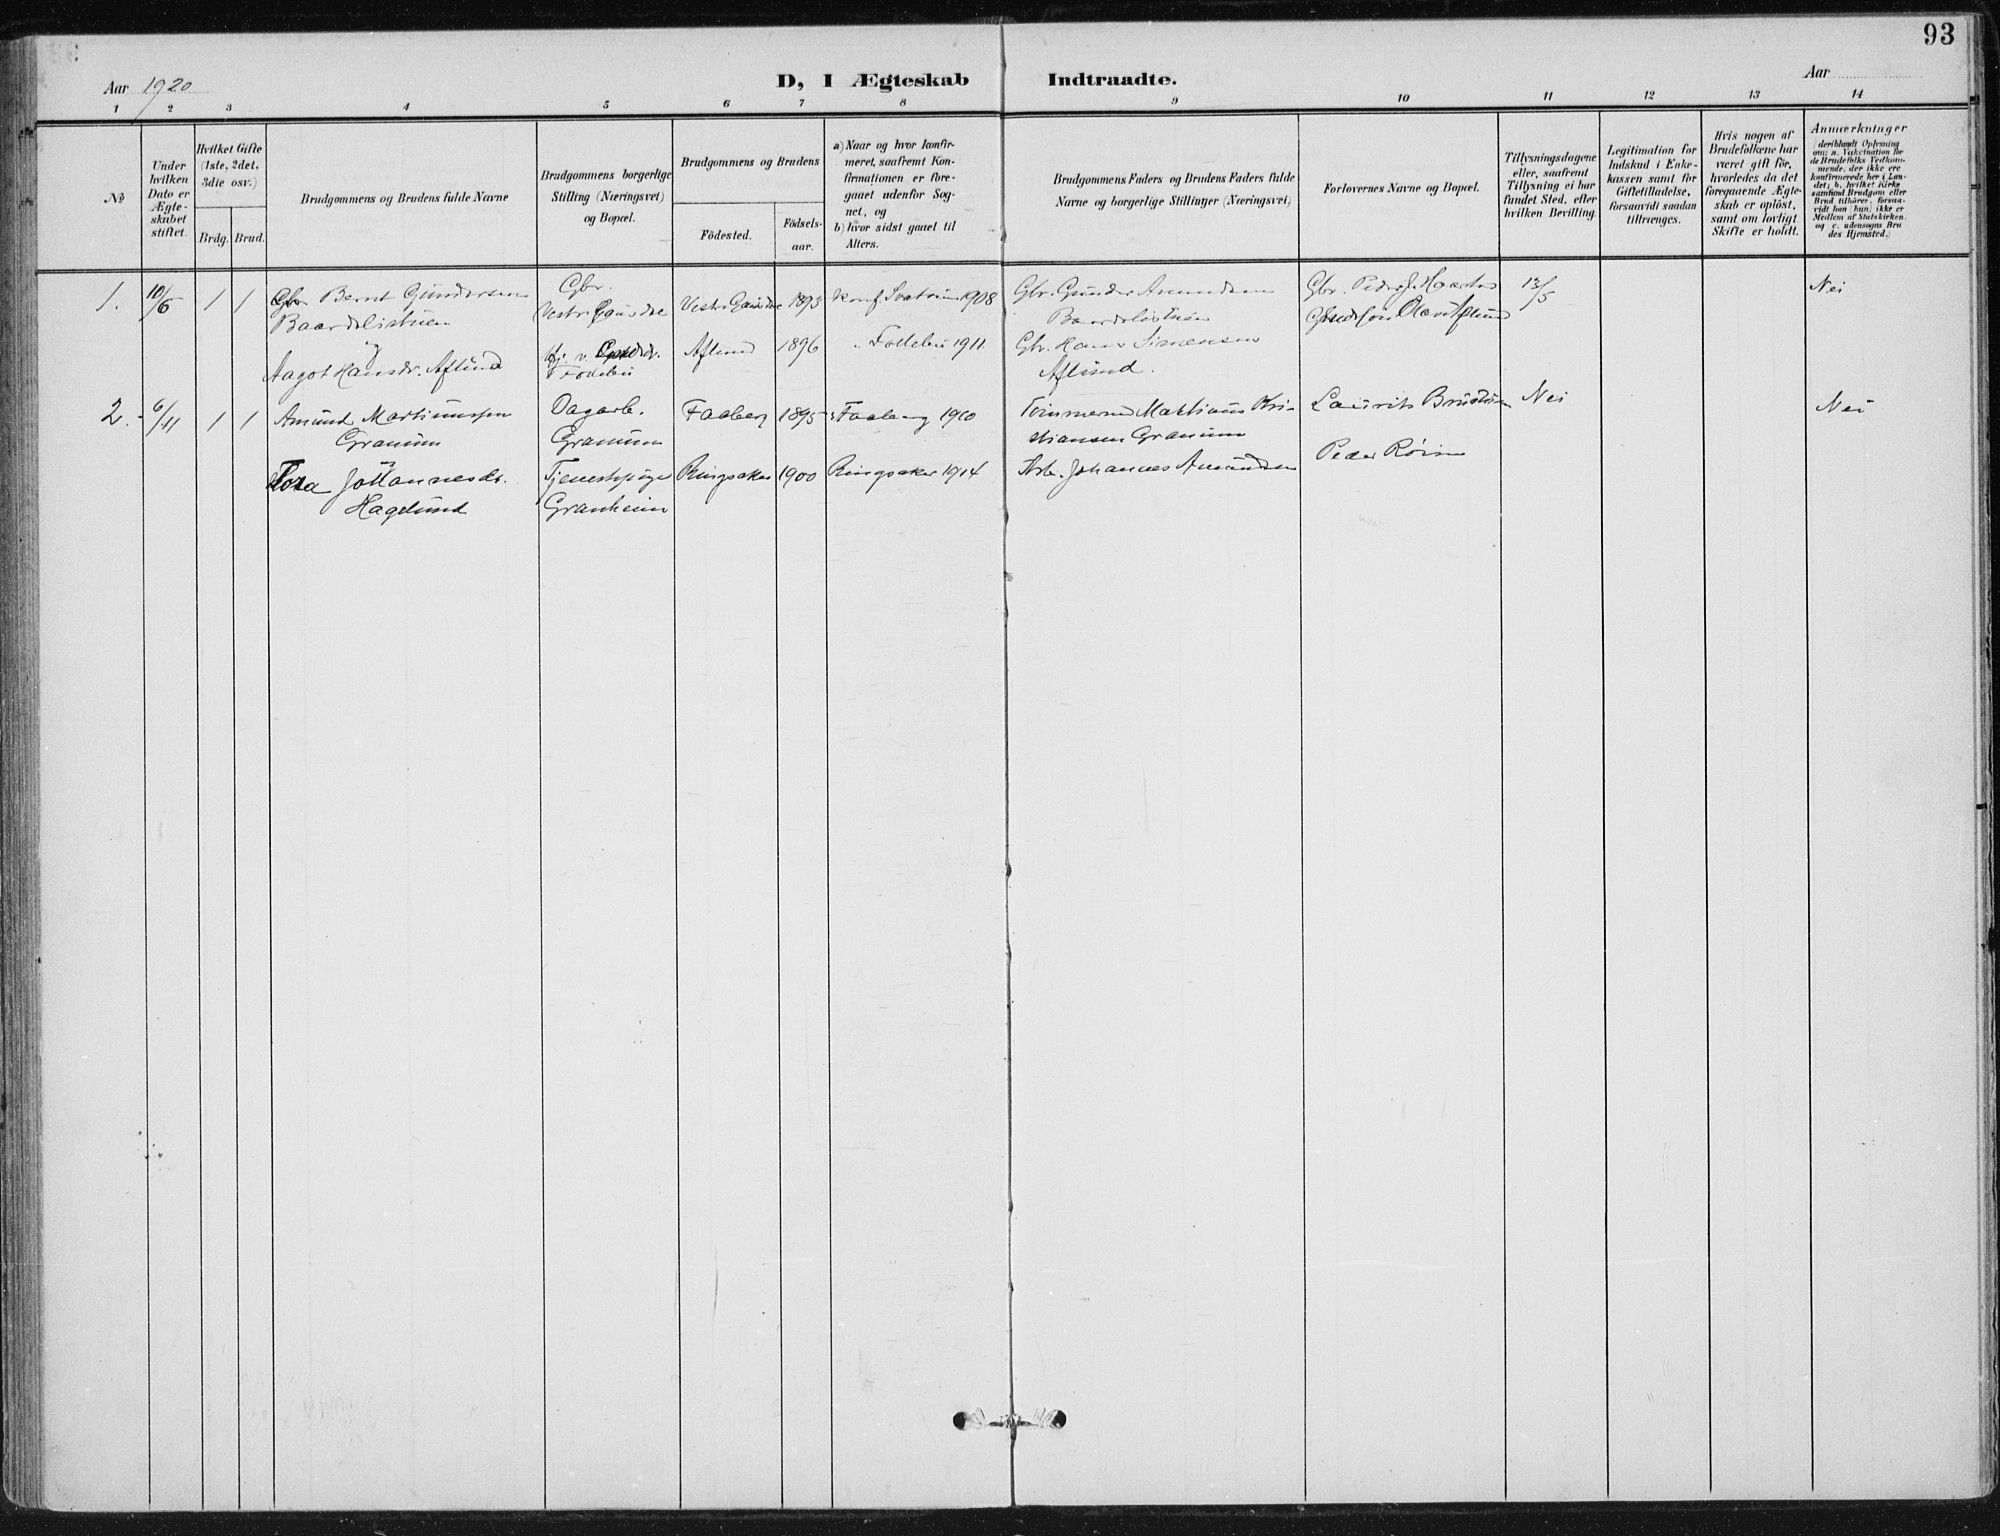 93
Aar 1920
D, I Ægteskab Indtraadte.
Aar
1 2 3 4 5 6 7 8 9 10 11 12 13 14
No
Under hvilken Dato er Ægte-skabet stiftet.
Hvilket Gifte (1ste, 2det, 3die osv.)
Brdg. Brud.
Brudgommens og Brudens fulde Navne
Brudgommens borgerlige Stilling (Næringsvei) og Bopæl.
Brudgommens og Brudens
Födested.
Födsels-aar.
a) Naar og hvor konfir-
meret, saafremt Kon-
firmationen er fore-
gaaet udenfor Sog-
net, og
b) hvor sidst gaaet til
Alters.
Brudgommens Faders og Brudens Faders fulde
Navne og borgerlige Stillinger (Næringsvei)
Forlovernes Navne og Bopæl.
Tillysningsdagene
eller, saafremt
Tillysning ei har
fundet Sted, efter
hvilken Bevilling.
Legitimation for
Indskud i Enke-
kassen samt for
Giftetilladelse,
forsaavidt saadan
tiltrænges.
Hvis nogen af
Brudefolkene har
været gift för,
hvorledes da det
foregaaende Ægte-
skab er oplöst,
samt om lovligt
Skifte er holdt.
Anmærkninger
(deriblandt Oplysning
om: a. Vakcination for
de Brudefolks Vedkom-
mende, der ikke ere
konfirmerede her i Lan-
det; b. hvilket Kirke-
samfund Brudgom eller
Brud tilhörer, forsaa-
vidt han (hun) ikke er
Medlem af Statskirken.
og c. udensogns Bru-
des Hjemsted.)
1. 10/5 1 1 Gbr. Bernt Gundersen Gbr. 1893 Konf. Svatsum 1908 Gbr. Gunder Amundsen Gbr. Peder 13/5 Nei
Baardslistuen Vestre Gausdal Vestre Gausdal Baardslistuen Olav Aflund
Aagot Hansdr. Aflund Aflund 1896 " Follebu 1911 Gbr. Hans Simensen
Follebu Aflund.
2. 6/11 1 1 Amund Martinussen Dagarb. Faaberg 1895 Faaberg 1910 Martinus Kri- Laurits Nei Nei
Granum Granum stiansen Granum
Tora Johannesdr. Tjenestpige Ringsaker 1900 Ringsaker 1914 Arb. Johannes Amundsen Peder
Haglund Granheim